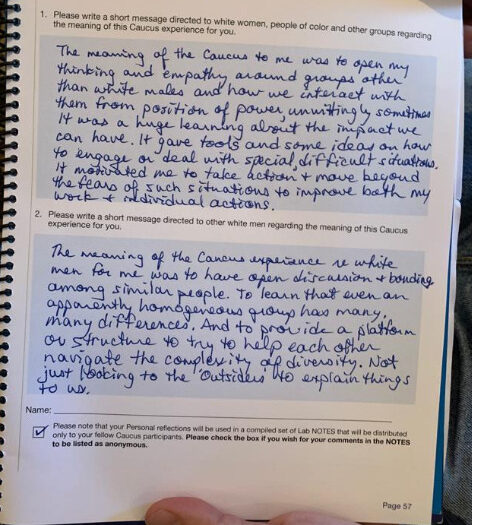 1. Please write a short message directed to white women, people of color and other groups regarding
the meaning of this Caucus experience for you.
The meaning of the Caucus to me was to open my
thinking and empathy around groups other
than white males and how we interact with
them from position of power, unwittingly sometimes
It was a huge learning about the impact we
can have. It gave tools and some ideas on how
to engage or deal with special, difficult situations.
It motivated me to take action + move beyond
the fears of such situations to improve both my
work + individual actions.
2. Please write a short message directed to other white men regarding the meaning of this Caucus
experience for you.
The meaning of the Caucus experience re white
men for me was to have open discussion + bonding
among similar people. To learn that even an
apparently homogeneous group has many,
many differences. And to provide a platform
or structure to try to help each other
navigate the complexity of diversity. Not
just looking to the "outsiders" to explain things
to us.
Name:
Please note that your Personal reflections will be used in a compiled set of Lab NOTES that will be distributed
only to your fellow Caucus participants. Please check the box if you wish for your comments in the NOTES
to be listed as anonymous.
Page 57